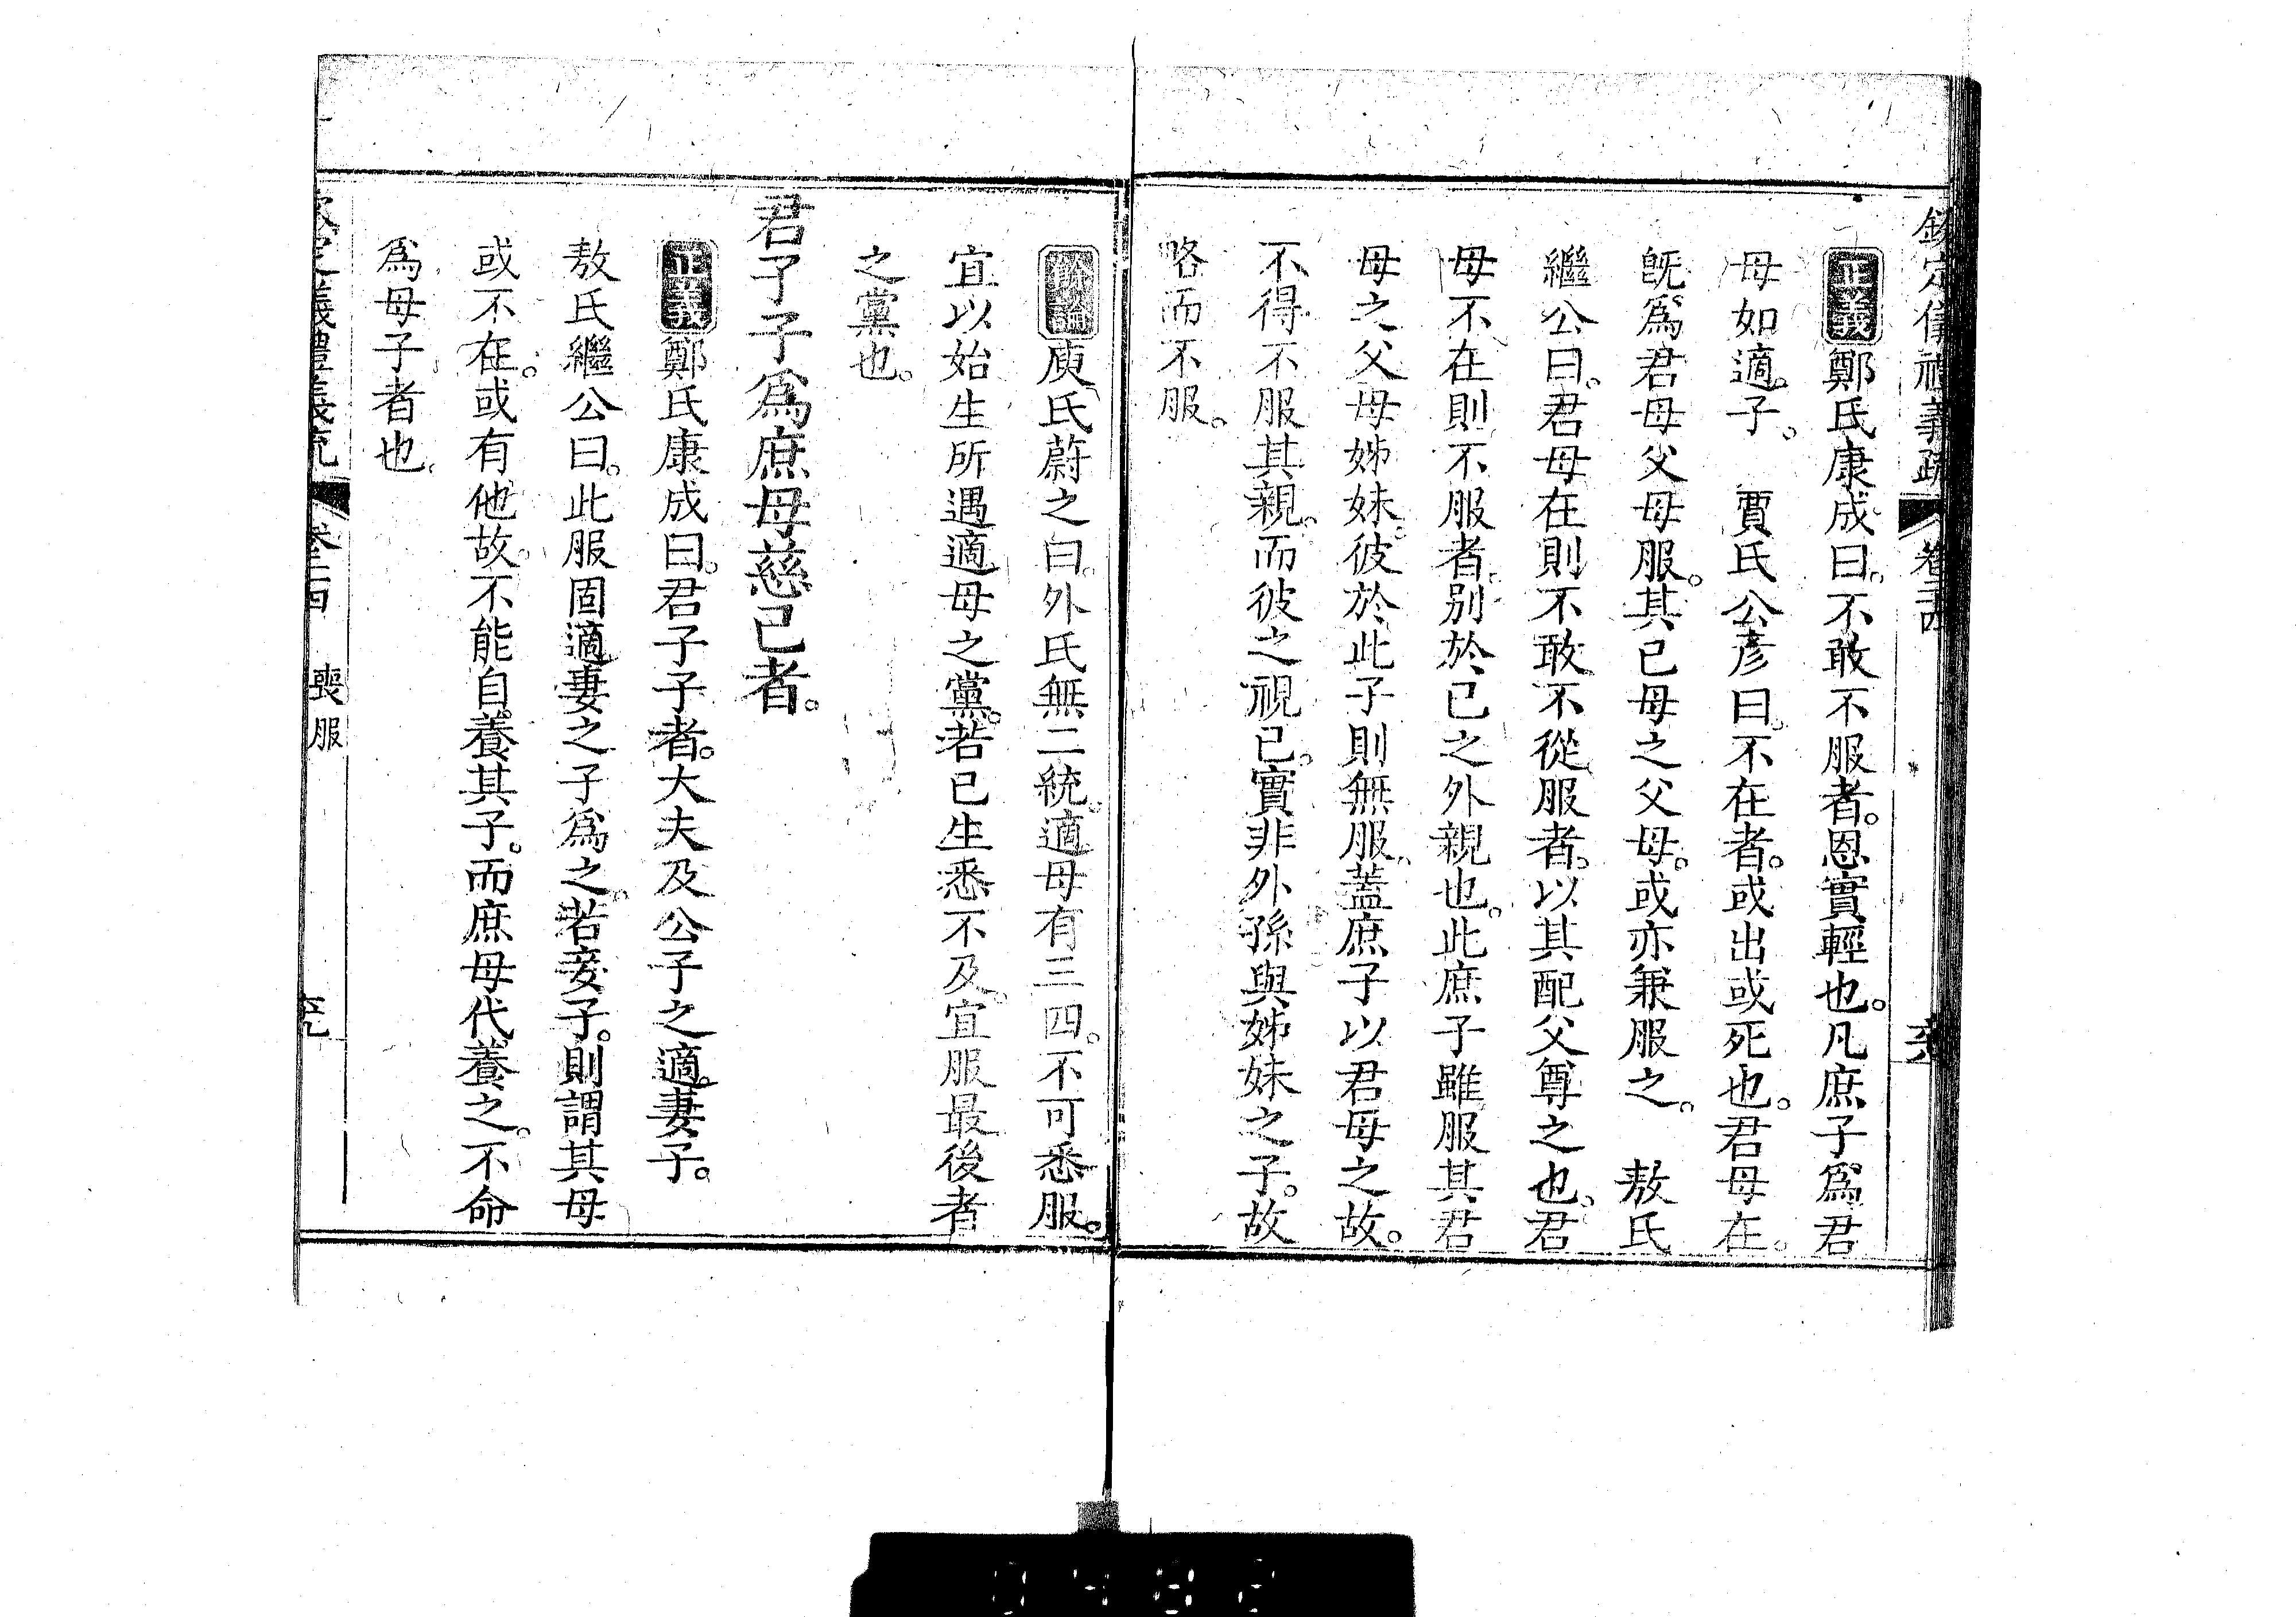 欽定儀禮義疏 卷二四
正義鄭氏康成曰。不敢不服者。恩實輕也。凡庶子爲君
母如適子。 賈氏公彥曰。不在者。或出或死也。君母在。
旣爲君母父母服。其己母之父母。或亦兼服之。 敖氏
繼公曰。君母在則不敢不從服者。以其配父尊之也。君
母不在則不服者。别於己之外親也。此庶子雖服其君
母之父母姊妹。彼於此子則無服。蓋庶子以君母之故。
不得不服其親。而彼之視己。實非外孫與姊妹之子。故
略而不服。
餘論庾氏蔚之曰。外氏無二統。適母有三四。不可悉服。
宜以始生所遇適母之黨。若已生悉不及。宜服最後者
之黨也。
君子子爲庶母慈己者。
正義鄭氏康成曰。君子子者。大夫及公子之適妻子。
敖氏繼公曰。此服固適妻之子爲之。若妾子。則謂其母
或不在。或有他故。不能自養其子。而庶母代養之。不命
爲母子者也。
欽定儀禮義疏 卷二四 喪服